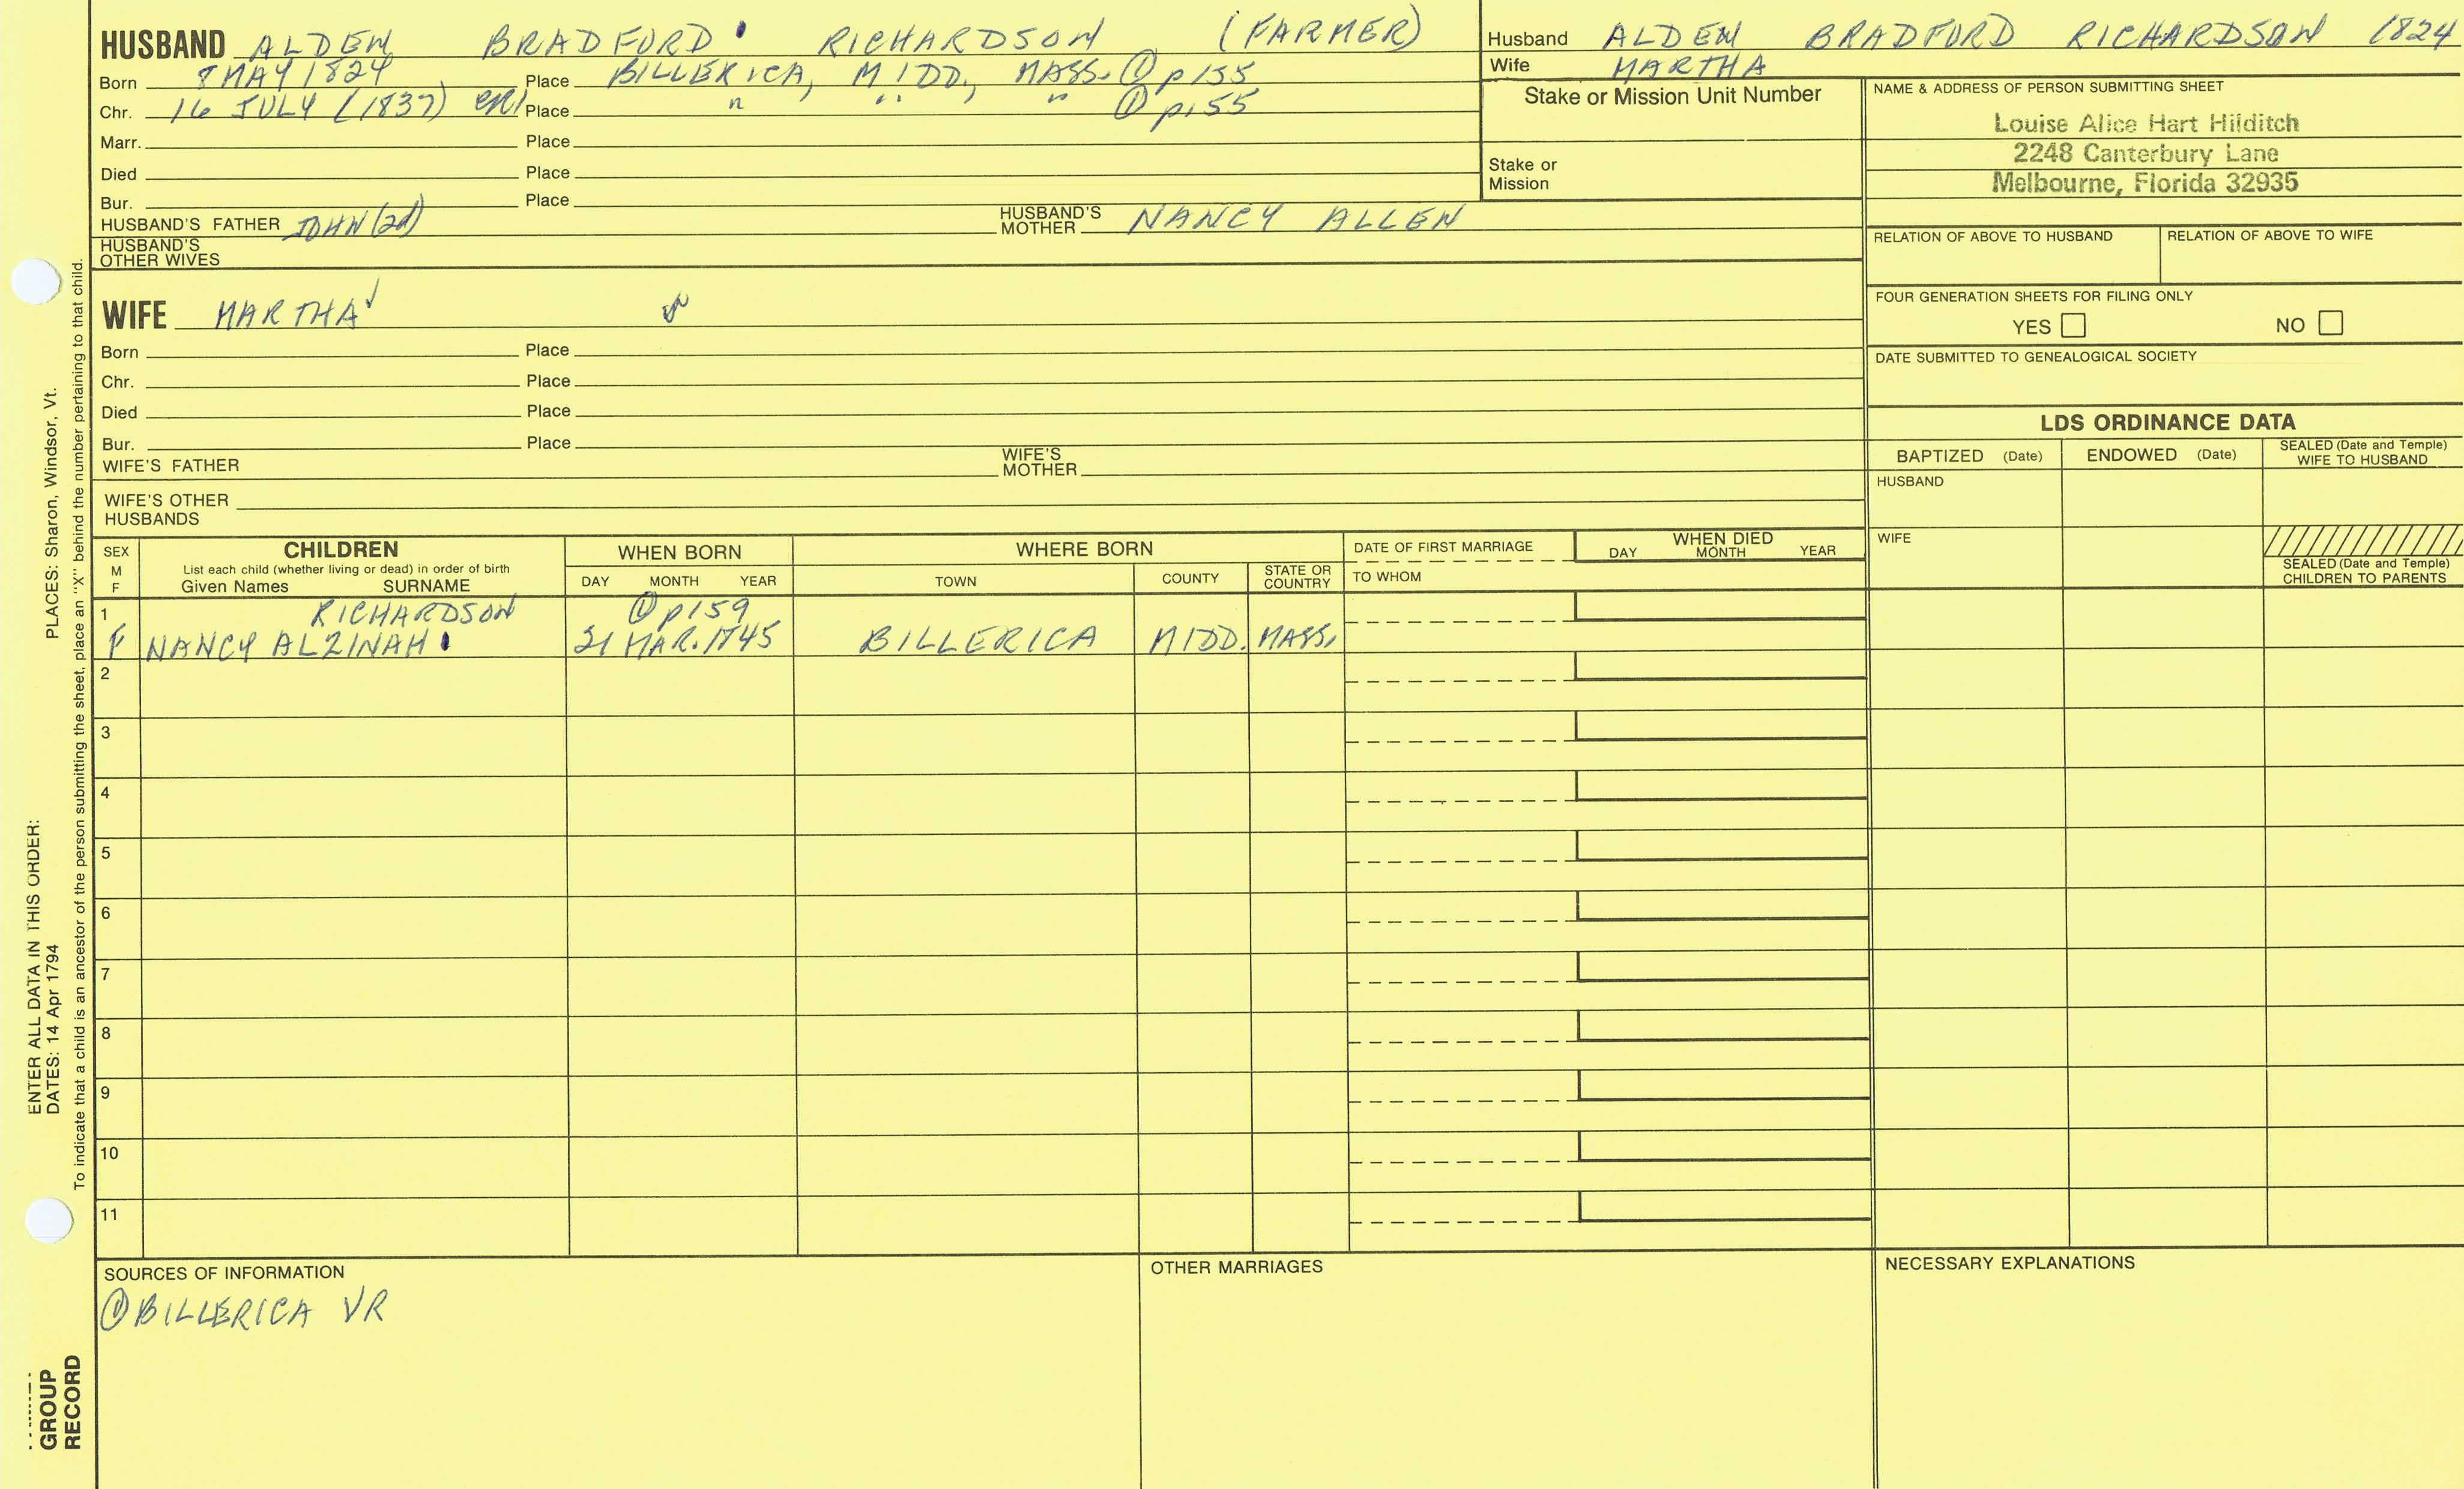 HUSBAND ALDEN BRADFORD RICHARDSON (FARMER)
Born 8 MAY 1824 Place BILLERICA, MIDD., MASS. ① p155
Chr. 16 JULY (1837) Place " " " ① p.155
Marr. Place
Died Place
Bur. Place
HUSBAND'S FATHER JOHN (2d) HUSBAND'S MOTHER NANCY ALLEN
HUSBAND'S OTHER WIVES
Husband ALDEN BRADFORD RICHARDSON 1824
Wife MARTHA
Stake or Mission Unit Number
Stake or
Mission
NAME & ADDRESS OF PERSON SUBMITTING SHEET
Louise Alice Hart Hilditch
2248 Canterbury Lane
Melbourne, Florida 32935
RELATION OF ABOVE TO HUSBAND RELATION OF ABOVE TO WIFE
FOUR GENERATION SHEETS FOR FILING ONLY
YES NO
DATE SUBMITTED TO GENEALOGICAL SOCIETY
WIFE MARTHA
Born Place
Chr. Place
Died Place
Bur. Place
WIFE'S FATHER WIFE'S MOTHER
WIFE'S OTHER
HUSBANDS
LDS ORDINANCE DATA
BAPTIZED (Date) ENDOWED (Date) SEALED (Date and Temple) WIFE TO HUSBAND
HUSBAND
WIFE
SEALED (Date and Temple)
CHILDREN TO PARENTS
SEX
M
F
CHILDREN
List each child (whether living or dead) in order of birth
Given Names SURNAME
WHEN BORN
DAY MONTH YEAR
WHERE BORN
TOWN COUNTY STATE OR COUNTRY
DATE OF FIRST MARRIAGE
TO WHOM
WHEN DIED
DAY MONTH YEAR
1 RICHARDSON ① p159
F NANCY ALZINAH MAR. BILLERICA MIDD. MASS.
2
3
4
5
6
7
8
9
10
11
SOURCES OF INFORMATION
① BILLERICA VR
OTHER MARRIAGES
NECESSARY EXPLANATIONS
PLACES: Sharon, Windsor, Vt.
ENTER ALL DATA IN THIS ORDER:
DATES: 14 Apr 1794
To indicate that a child is an ancestor of the person submitting the sheet, place an "X" behind the number pertaining to that child.
GROUP
RECORD